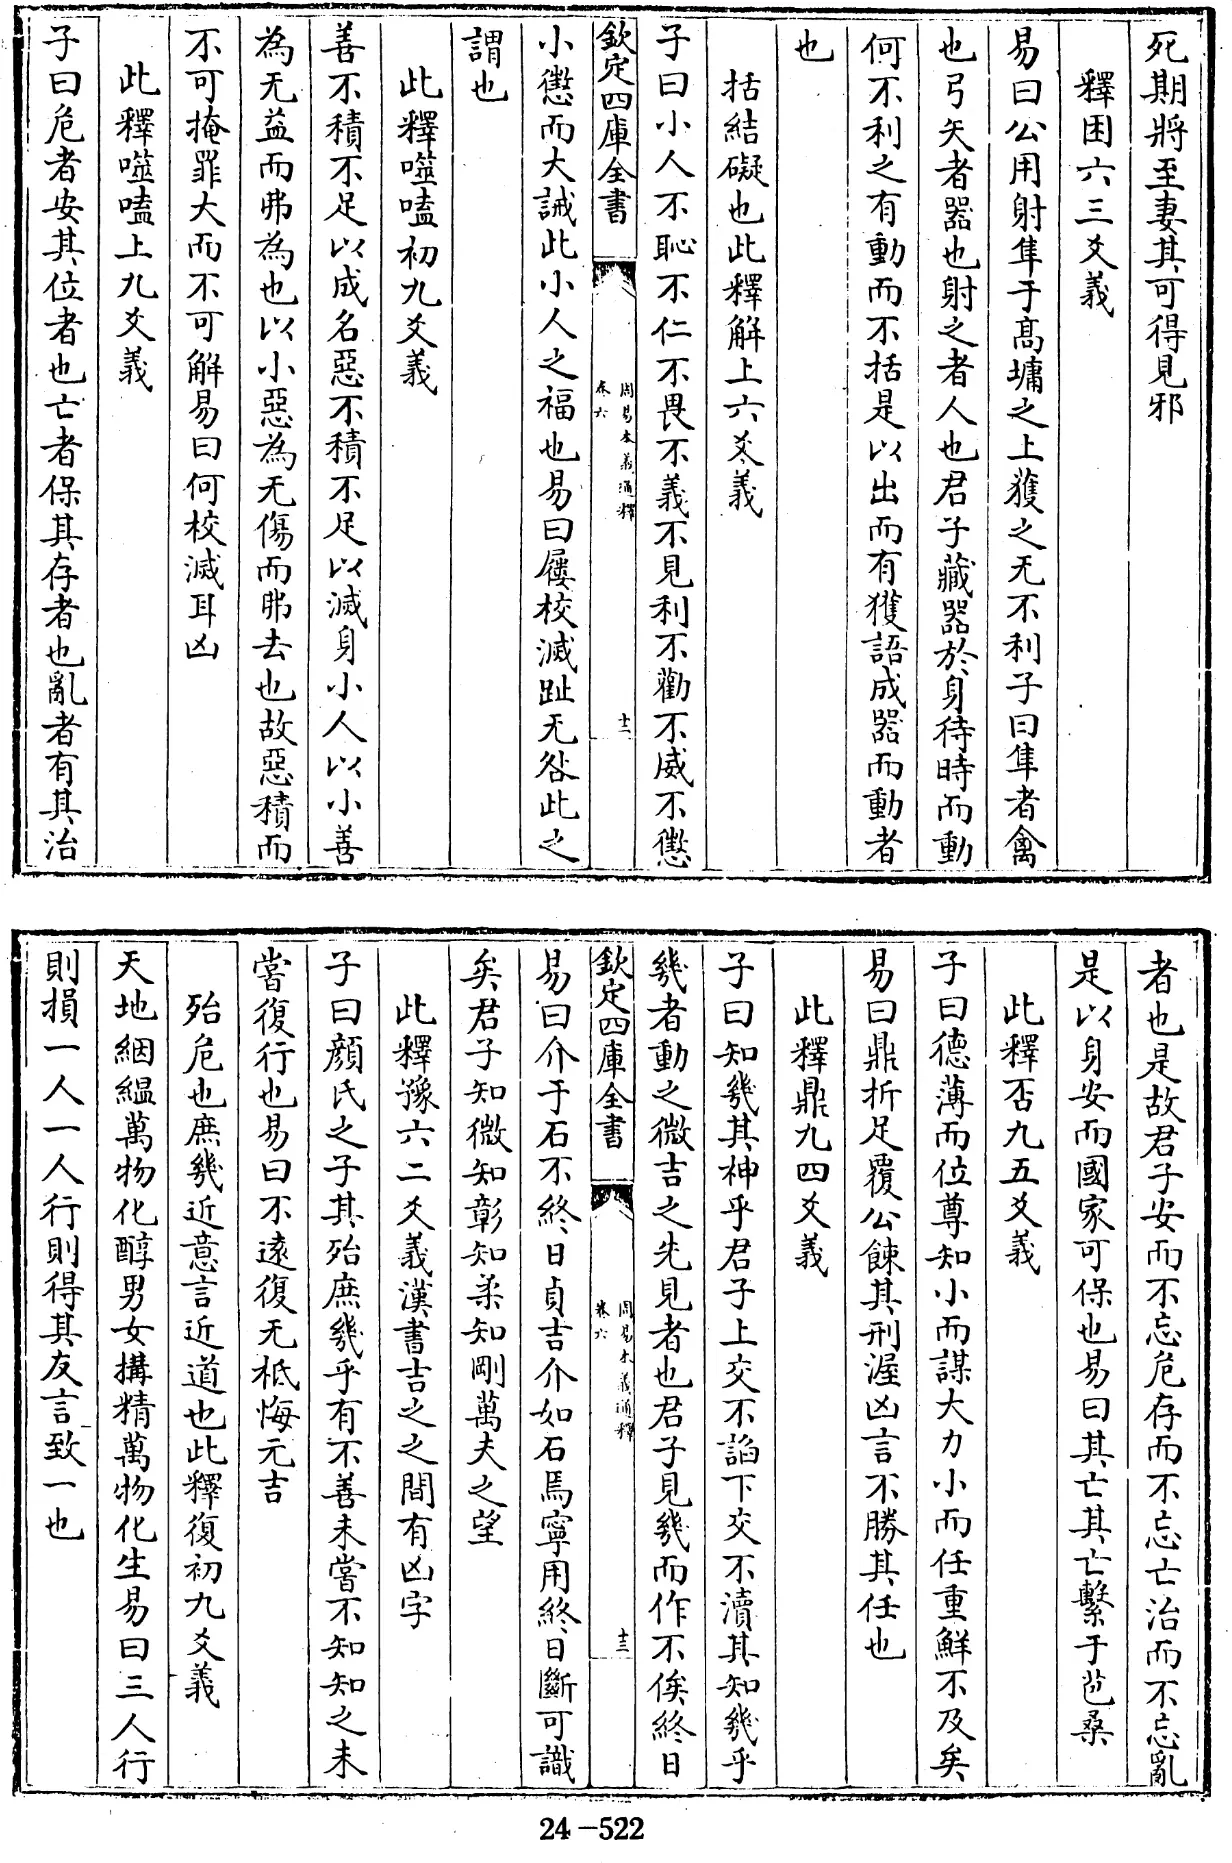 死期將至妻其可得見邪
釋困六三爻義
易曰公用射隼于高墉之上獲之无不利子曰隼者禽
也弓矢者器也射之者人也君子藏器於身待時而動
何不利之有動而不括是以出而有獲語成器而動者
也
括結礙也此釋解上六爻義
子曰小人不恥不仁不畏不義不見利不勸不威不懲
欽定四庫全書
周易本義通釋
卷六
十二
小懲而大誡此小人之福也易曰屨校滅趾无咎此之
謂也
此釋噬嗑初九爻義
善不積不足以成名惡不積不足以滅身小人以小善
為无益而弗為也以小惡為无傷而弗去也故惡積而
不可掩罪大而不可解易曰何校滅耳凶
此釋噬嗑上九爻義
子曰危者安其位者也亡者保其存者也亂者有其治
者也是故君子安而不忘危存而不忘亡治而不忘亂
是以身安而國家可保也易曰其亡其亡繫于苞桑
此釋否九五爻義
子曰德薄而位尊知小而謀大力小而任重鮮不及矣
易曰鼎折足覆公餗其刑渥凶言不勝其任也
此釋鼎九四爻義
子曰知幾其神乎君子上交不諂下交不瀆其知幾乎
幾者動之微吉之先見者也君子見幾而作不俟終日
欽定四庫全書
周易本義通釋
卷六
十三
易曰介于石不終日貞吉介如石焉寧用終日斷可識
矣君子知微知彰知柔知剛萬夫之望
此釋豫六二爻義漢書吉之之間有凶字
子曰顏氏之子其殆庶幾乎有不善未嘗不知知之未
嘗復行也易曰不遠復无祗悔元吉
殆危也庶幾近意言近道也此釋復初九爻義
天地絪縕萬物化醇男女搆精萬物化生易曰三人行
則損一人一人行則得其友言致一也
24-522